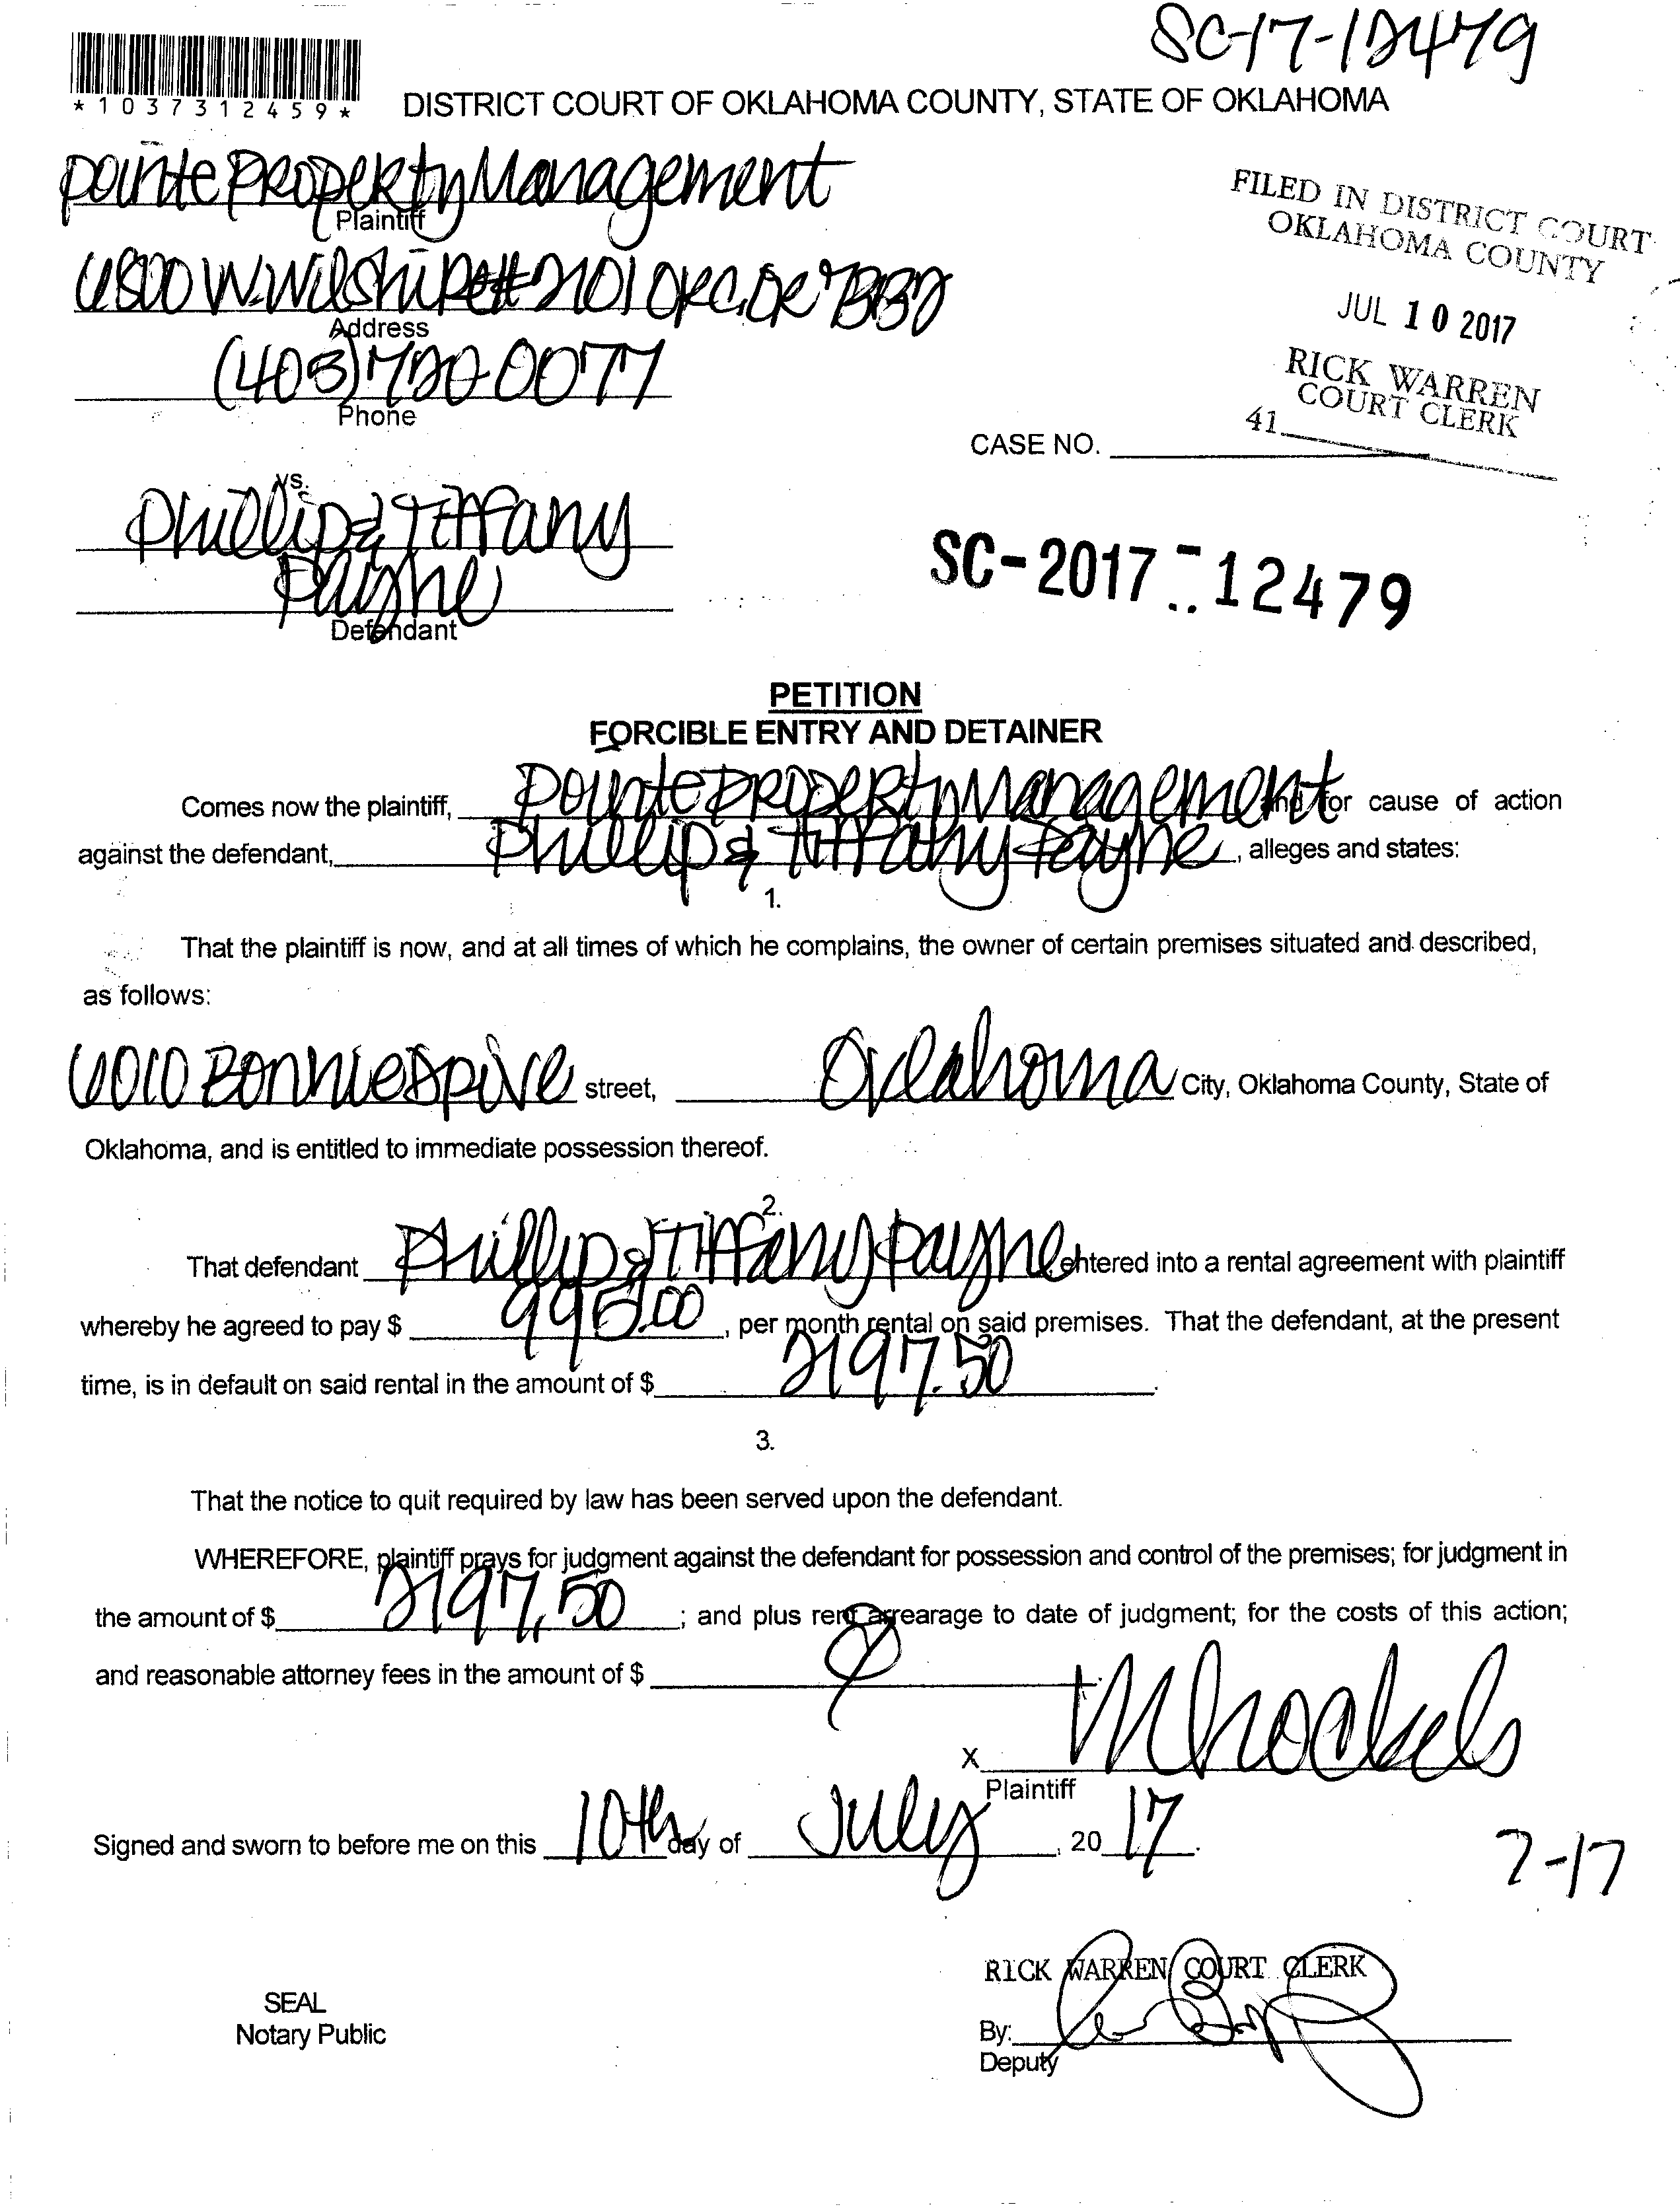 SC-17-12479
*1037312459*
DISTRICT COURT OF OKLAHOMA COUNTY, STATE OF OKLAHOMA
Pointe Property Management
Plaintiff
FILED IN DISTRICT COURT
OKLAHOMA COUNTY
6800 W. Wilshire # 2101 OKC, OK 73132
Address
JUL 10 2017
(405) 720-0077
Phone
RICK WARREN
COURT CLERK
41
CASE NO.
vs.
Phillip & Tiffany
Payne
Defendant
SC-2017-12479
PETITION
FORCIBLE ENTRY AND DETAINER
Comes now the plaintiff, Pointe Property Management and for cause of action
against the defendant, Phillip & Tiffany Payne, alleges and states:
1.
That the plaintiff is now, and at all times of which he complains, the owner of certain premises situated and described,
as follows:
6010 Bonnie Drive street, Oklahoma City, Oklahoma County, State of
Oklahoma, and is entitled to immediate possession thereof.
2.
That defendant Phillip & Tiffany Payne entered into a rental agreement with plaintiff
whereby he agreed to pay $ 995.00, per month rental on said premises. That the defendant, at the present
time, is in default on said rental in the amount of $ 2197.50.
3.
That the notice to quit required by law has been served upon the defendant.
WHEREFORE, plaintiff prays for judgment against the defendant for possession and control of the premises; for judgment in
the amount of $ 2197.50; and plus rent arrearage to date of judgment; for the costs of this action;
and reasonable attorney fees in the amount of $
X
Plaintiff
Signed and sworn to before me on this 10th day of July, 20 17.
7-17
RICK WARREN COURT CLERK
SEAL
Notary Public
By:
Deputy